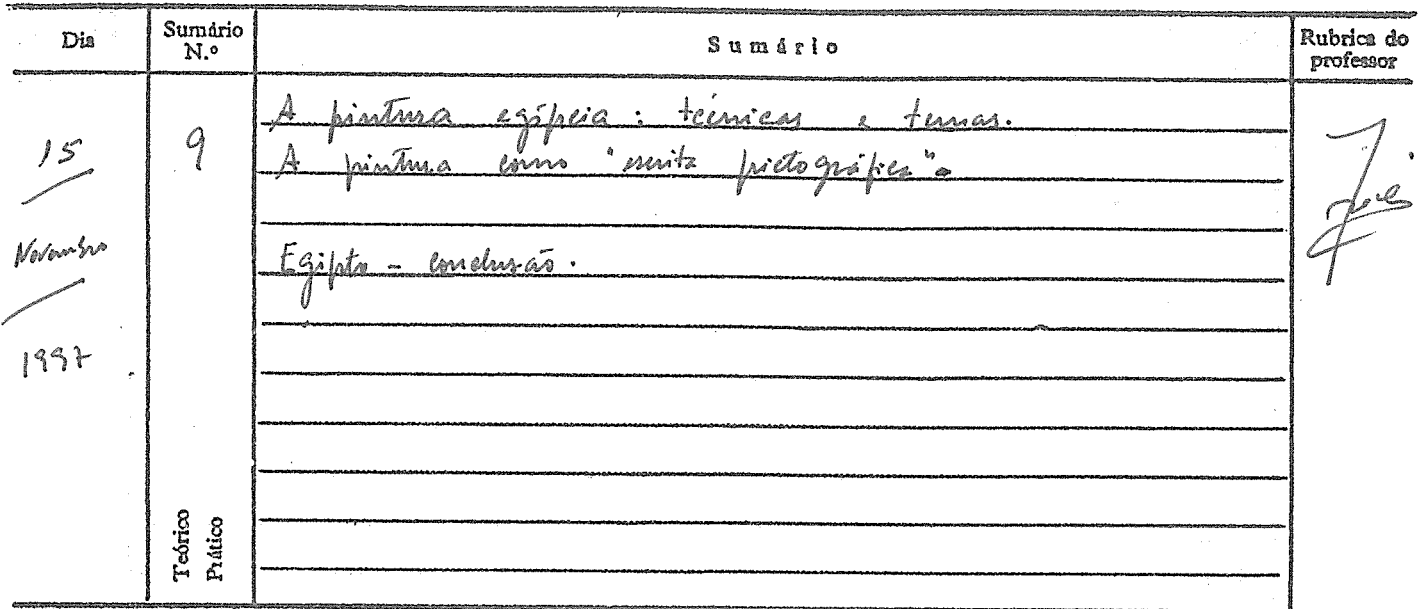 Dia
Sumário N.º
Sumário
Rubrica do professor
15
Novembro
1997
9
A pintura egípcia: técnicas e temas.
A pintura como "escrita pictográfica".
Egipto - conclusão.
Teórico
Prático